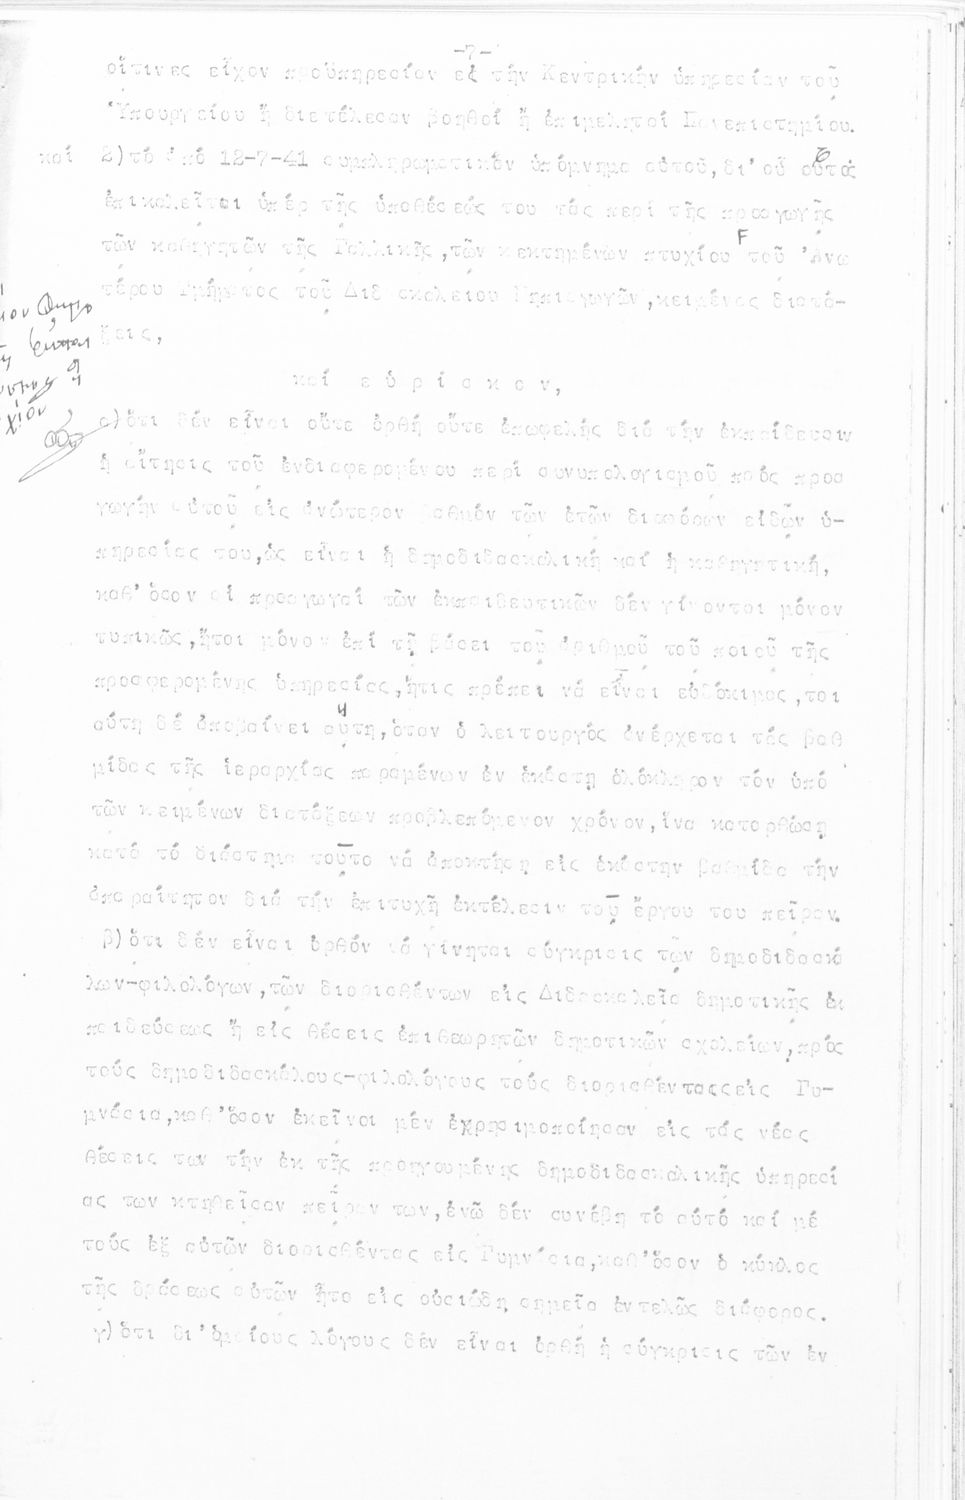 -7-
οἵτινες εἶχον προϋπηρεσίαν εἰς τήν Κεντρικήν ὑπηρεσίαν τοῦ
Ὑπουργείου ἤ διετέλεσαν βοηθοί ἤ ἐπιμεληταί Πανεπιστημίου.
καί 2)τό ἀπό 12-7-41 συμπληρωματικόν ὑπόμνημα αὐτοῦ,δι' οὗ οὗτος
ἐπικαλεῖται ὑπέρ τῆς ὑποθέσεώς του τάς περί τῆς προαγωγῆς
τῶν καθηγητῶν τῆς Γαλλικῆς,τῶν κεκτημένων πτυχίον τοῦ Ἀνω
τέρου Τμήματος τοῦ Διδασκαλείου Νηπιαγωγῶν,κειμένας διατά-
ξεις,
καί εὑρίσκον,
α)ὅτι δέν εἶναι οὔτε ὀρθή οὔτε ἐπωφελής διά τήν ἐκπαίδευσιν
ἡ αἴτησις τοῦ ἐνδιαφερομένου περί συνυπολογισμοῦ πρός προα
γωγήν αὐτοῦ εἰς ἀνώτερον βαθμόν τῶν ἐτῶν διαφόρων εἰδῶν ὑ-
πηρεσίας του,ὡς εἶναι ἡ δημοδιδασκαλική καί ἡ καθηγητική,
καθ' ὅσον αἱ προαγωγαί τῶν ἐκπαιδευτικῶν δέν γίνονται μόνον
τυπικῶς,ἤτοι μόνον ἐπί τῇ βάσει τοῦ ἀριθμοῦ τοῦ ποιοῦ τῆς
προσφερομένης ὑπηρεσίας,ἥτις πρέπει νά εἶναι εὐδόκιμος,τοι
αύτη δέ ἀποβαίνει αὕτη,ὅταν ὁ λειτουργός ἀνέρχεται τάς βαθ
μίδας τῆς ἱεραρχίας παραμένων ἐν ἑκάστῃ ὁλόκληρον τόν ὑπό
τῶν κειμένων διατάξεων προβλεπόμενον χρόνον,ἵνα κατορθώσῃ
κατά τό διάστημα τοῦτο νά ἀποκτήσῃ εἰς ἑκάστην βαθμίδα τήν
ἀπαραίτητον διά τήν ἐπιτυχῆ ἐκτέλεσιν τοῦ ἔργου του πεῖραν.
β)ὅτι δέν εἶναι ὀρθόν νά γίνηται σύγκρισις τῶν δημοδιδασκά
λων-φιλολόγων,τῶν διορισθέντων εἰς Διδασκαλεῖα δημοτικῆς ἐκ
παιδεύσεως ἤ εἰς θέσεις ἐπιθεωρητῶν δημοτικῶν σχολείων,πρός
τούς δημοδιδασκάλους-φιλολόγους τούς διορισθέντας εἰς Γυ-
μνάσια,καθ' ὅσον ἐκεῖνοι μέν ἐχρησιμοποίησαν εἰς τάς νέας
θέσεις των τήν ἐκ τῆς προηγουμένης δημοδιδασκαλικῆς ὑπηρεσί
ας των κτηθεῖσαν πεῖραν των,ἐνῶ δέν συνέβη τό αὐτό καί μέ
τούς ἐξ αὐτῶν διορισθέντας εἰς Γυμνάσια,καθ' ὅσον ὁ κύκλος
τῆς δράσεως αὐτῶν ἦτο εἰς οὐσιώδη σημεῖα ἐντελῶς διάφορος.
γ)ὅτι δι' ὁμοίους λόγους δέν εἶναι ὀρθή ἡ σύγκρισις τῶν ἐν